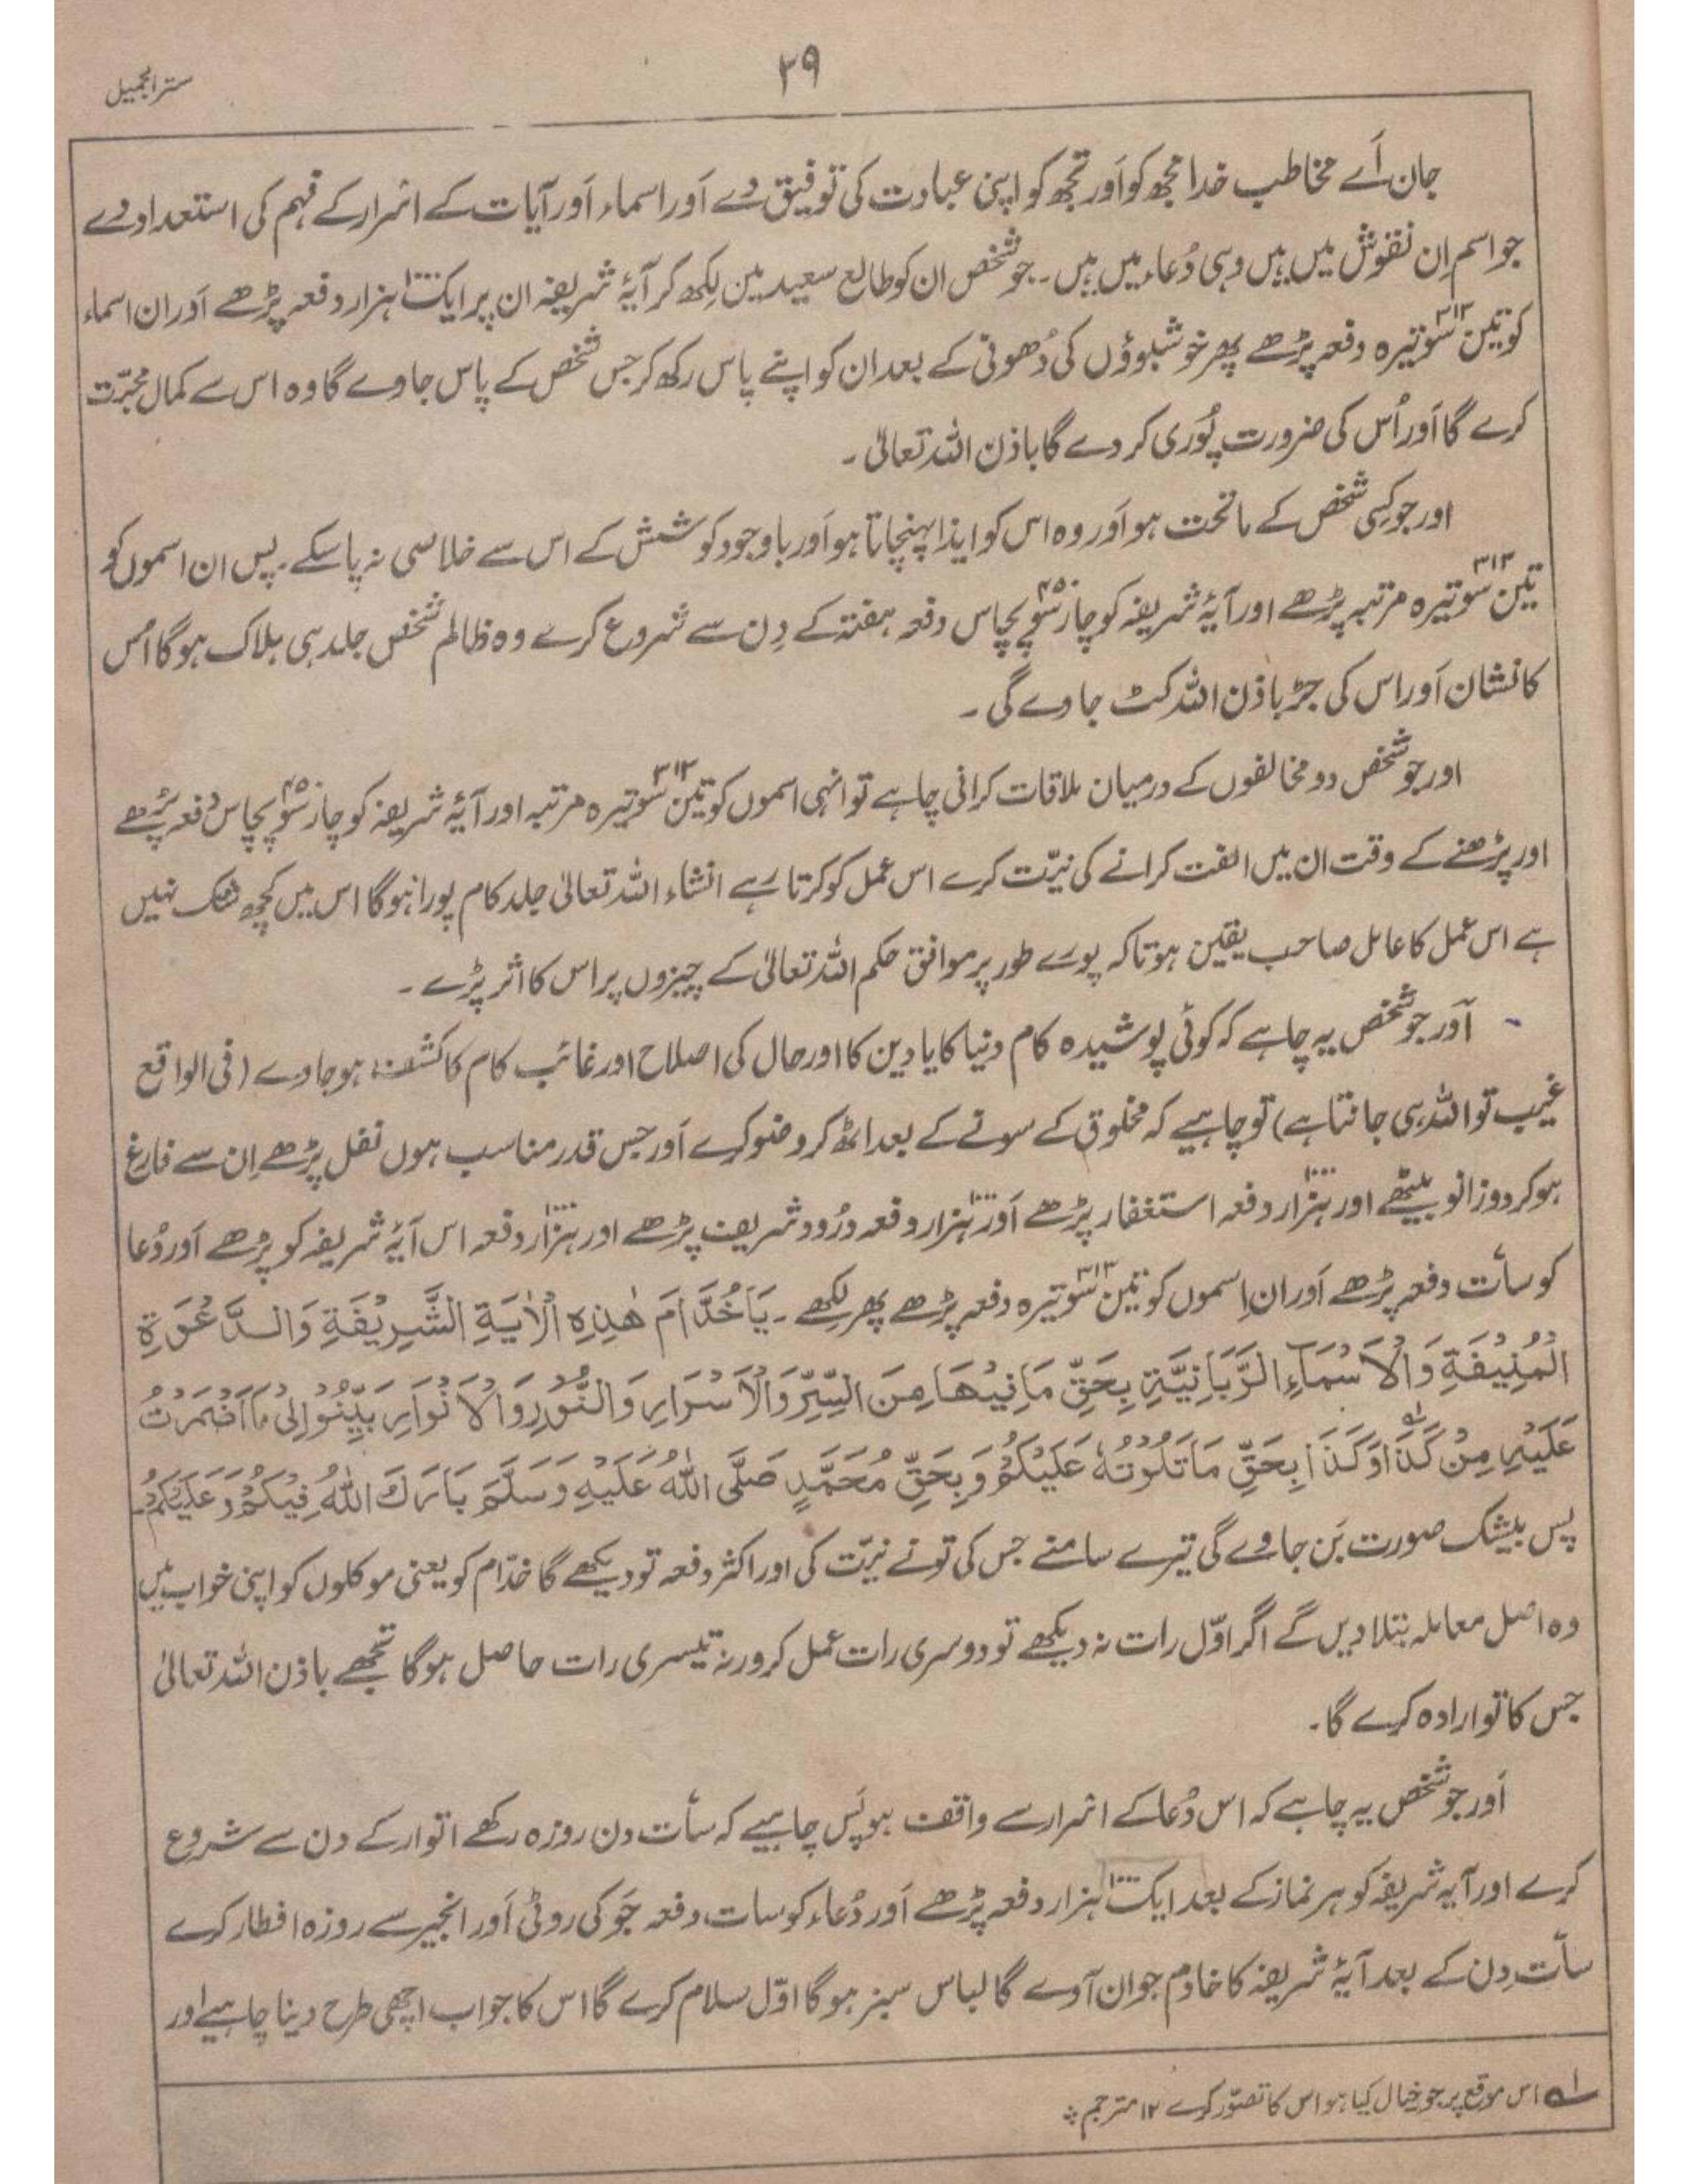 ۲۹
ستر الجمیل
جان اَے مخاطب خدا مجھ کو اَور تجھ کو اپنی عبادت کی توفیق دے اَور اسماء اَور آیات کے اسرار کے فہم کی استعداد دے
جو اسم اِن نقوش میں ہیں وہی دُعاء میں ہیں۔ جو شخص ان کو طالع سعید میں لکھ کر آیۂ شریفہ ان پر ایک ۱۰۰۰ ہزار دفعہ پڑھے اَور ان اسماء
کو تین سو تیرہ ۳۱۳ دفعہ پڑھے پھر خوشبوؤں کی دُھونی کے بعد ان کو اپنے پاس رکھ کر جس شخص کے پاس جاوے گا وہ اس سے کمال محبّت
کرے گا اَور اُس کی ضرورت پُوری کر دے گا باذن اللہ تعالیٰ۔
اور جو کِسی شخص کے ماتحت ہو اَور وہ اس کو ایذا پہنچاتا ہو اَور باوجود کوشش کے اس سے خلاصی نہ پاسکے۔ پس ان اسموں کو
تین سو تیرہ ۳۱۳ مرتبہ پڑھے اور آیۂ شریفہ کو چار سو پچاس ۴۵۰ دفعہ ہفتہ کے دِن سے شروع کرے وہ ظالم شخص جلد ہی ہلاک ہوگا اُس
کا نشان اَور اس کی جڑ باذن اللہ کٹ جاوے گی۔
اور جو شخص دو مخالفوں کے درمیان ملاقات کرانی چاہے تو انہی اسموں کو تین سو تیرہ ۳۱۳ مرتبہ اور آیۂ شریفہ کو چار سو پچاس ۴۵۰ دفعہ پڑھے
اور پڑھنے کے وقت ان میں الفت کرانے کی نیّت کرے اس عمل کو کرتا رہے انشاء اللہ تعالیٰ جلد کام پورا ہوگا اس میں کچھ شک نہیں
ہے اس عمل کا عامل صاحب یقین ہو تاکہ پورے طور پر موافق حکم اللہ تعالیٰ کے چیزوں پر اس کا اثر پڑے۔
اَور جو شخص یہ چاہے کہ کوئی پوشیدہ کام دنیا کا یا دین کا اور حال کی اصلاح اور غائب کام کا کشف ہو جاوے (فی الواقع
غیب تو اللہ ہی جانتا ہے) تو چاہیے کہ مخلوق کے سونے کے بعد اٹھ کر وضو کرے اَور جس قدر مناسب ہوں نفل پڑھے اِن سے فارغ
ہوکر دوزانو بیٹھے اور ہزار ۱۰۰۰ دفعہ استغفار پڑھے اَور ہزار ۱۰۰۰ دفعہ درُود شریف پڑھے اور ہزار ۱۰۰۰ دفعہ اس آیۂ شریفہ کو پڑھے اَور دُعا
کو سات دفعہ پڑھے اَور ان اِسموں کو تین سو تیرہ ۳۱۳ دفعہ پڑھے پھر لکھے۔ یَاخُدَّامَ هٰذِهِ الْاٰيَةِ الشَّرِيْفَةِ وَالدَّعْوَةِ
الْمُنِيْفَةِ وَالْاَسْمَآءِ الرَّبَّانِيَّةِ بِحَقِّ مَا فِيْهَا مِنَ السِّرِّ وَالْاَسْرَارِ وَالنُّوْرِ وَالْاَنْوَارِ بَيِّنُوْا لِىْ مَا اَضْمَرْتُ
عَلَيْهِ مِنْ كَذَا وَكَذَا ۱؎ بِحَقِّ مَا تَلَوْتُهٗ عَلَيْكُمْ وَبِحَقِّ مُحَمَّدٍ صَلَّى اللهُ عَلَيْهِ وَسَلَّمَ بَارَكَ اللهُ فِيْكُمْ وَعَلَيْكُمْ۔
پس بیشک صورت بَن جاوے گی تیرے سامنے جس کی تونے نیّت کی اور اکثر دفعہ تو دیکھے گا خدّام کو یعنی موکلوں کو اپنی خواب میں
وہ اصل معاملہ بتلا دیں گے اگر اوّل رات نہ دیکھے تو دوسری رات عمل کر ورنہ تیسری رات حاصل ہوگا تجھے باذن اللہ تعالیٰ
جس کا تو ارادہ کرے گا۔
اَور جو شخص یہ چاہے کہ اس دُعا کے اسرار سے واقف ہو پَس چاہیے کہ سات دن روزہ رکھے اتوار کے دن سے شروع
کرے اور آیہ شریفہ کو ہر نماز کے بعد ایک ۱۰۰۰ ہزار دفعہ پڑھے اَور دُعاء کو سات دفعہ جَو کی روٹی اَور انجیر سے روزہ افطار کرے
سات دِن کے بعد آیۂ شریفہ کا خادم جوان آوے گا لباس سبز ہوگا اوّل سلام کرے گا اس کا جواب اچھی طرح دینا چاہیے اور
۱؎ اس موقع پر جو خیال کیا ہو اس کا تصوّر کرے ۱۲ مترجم